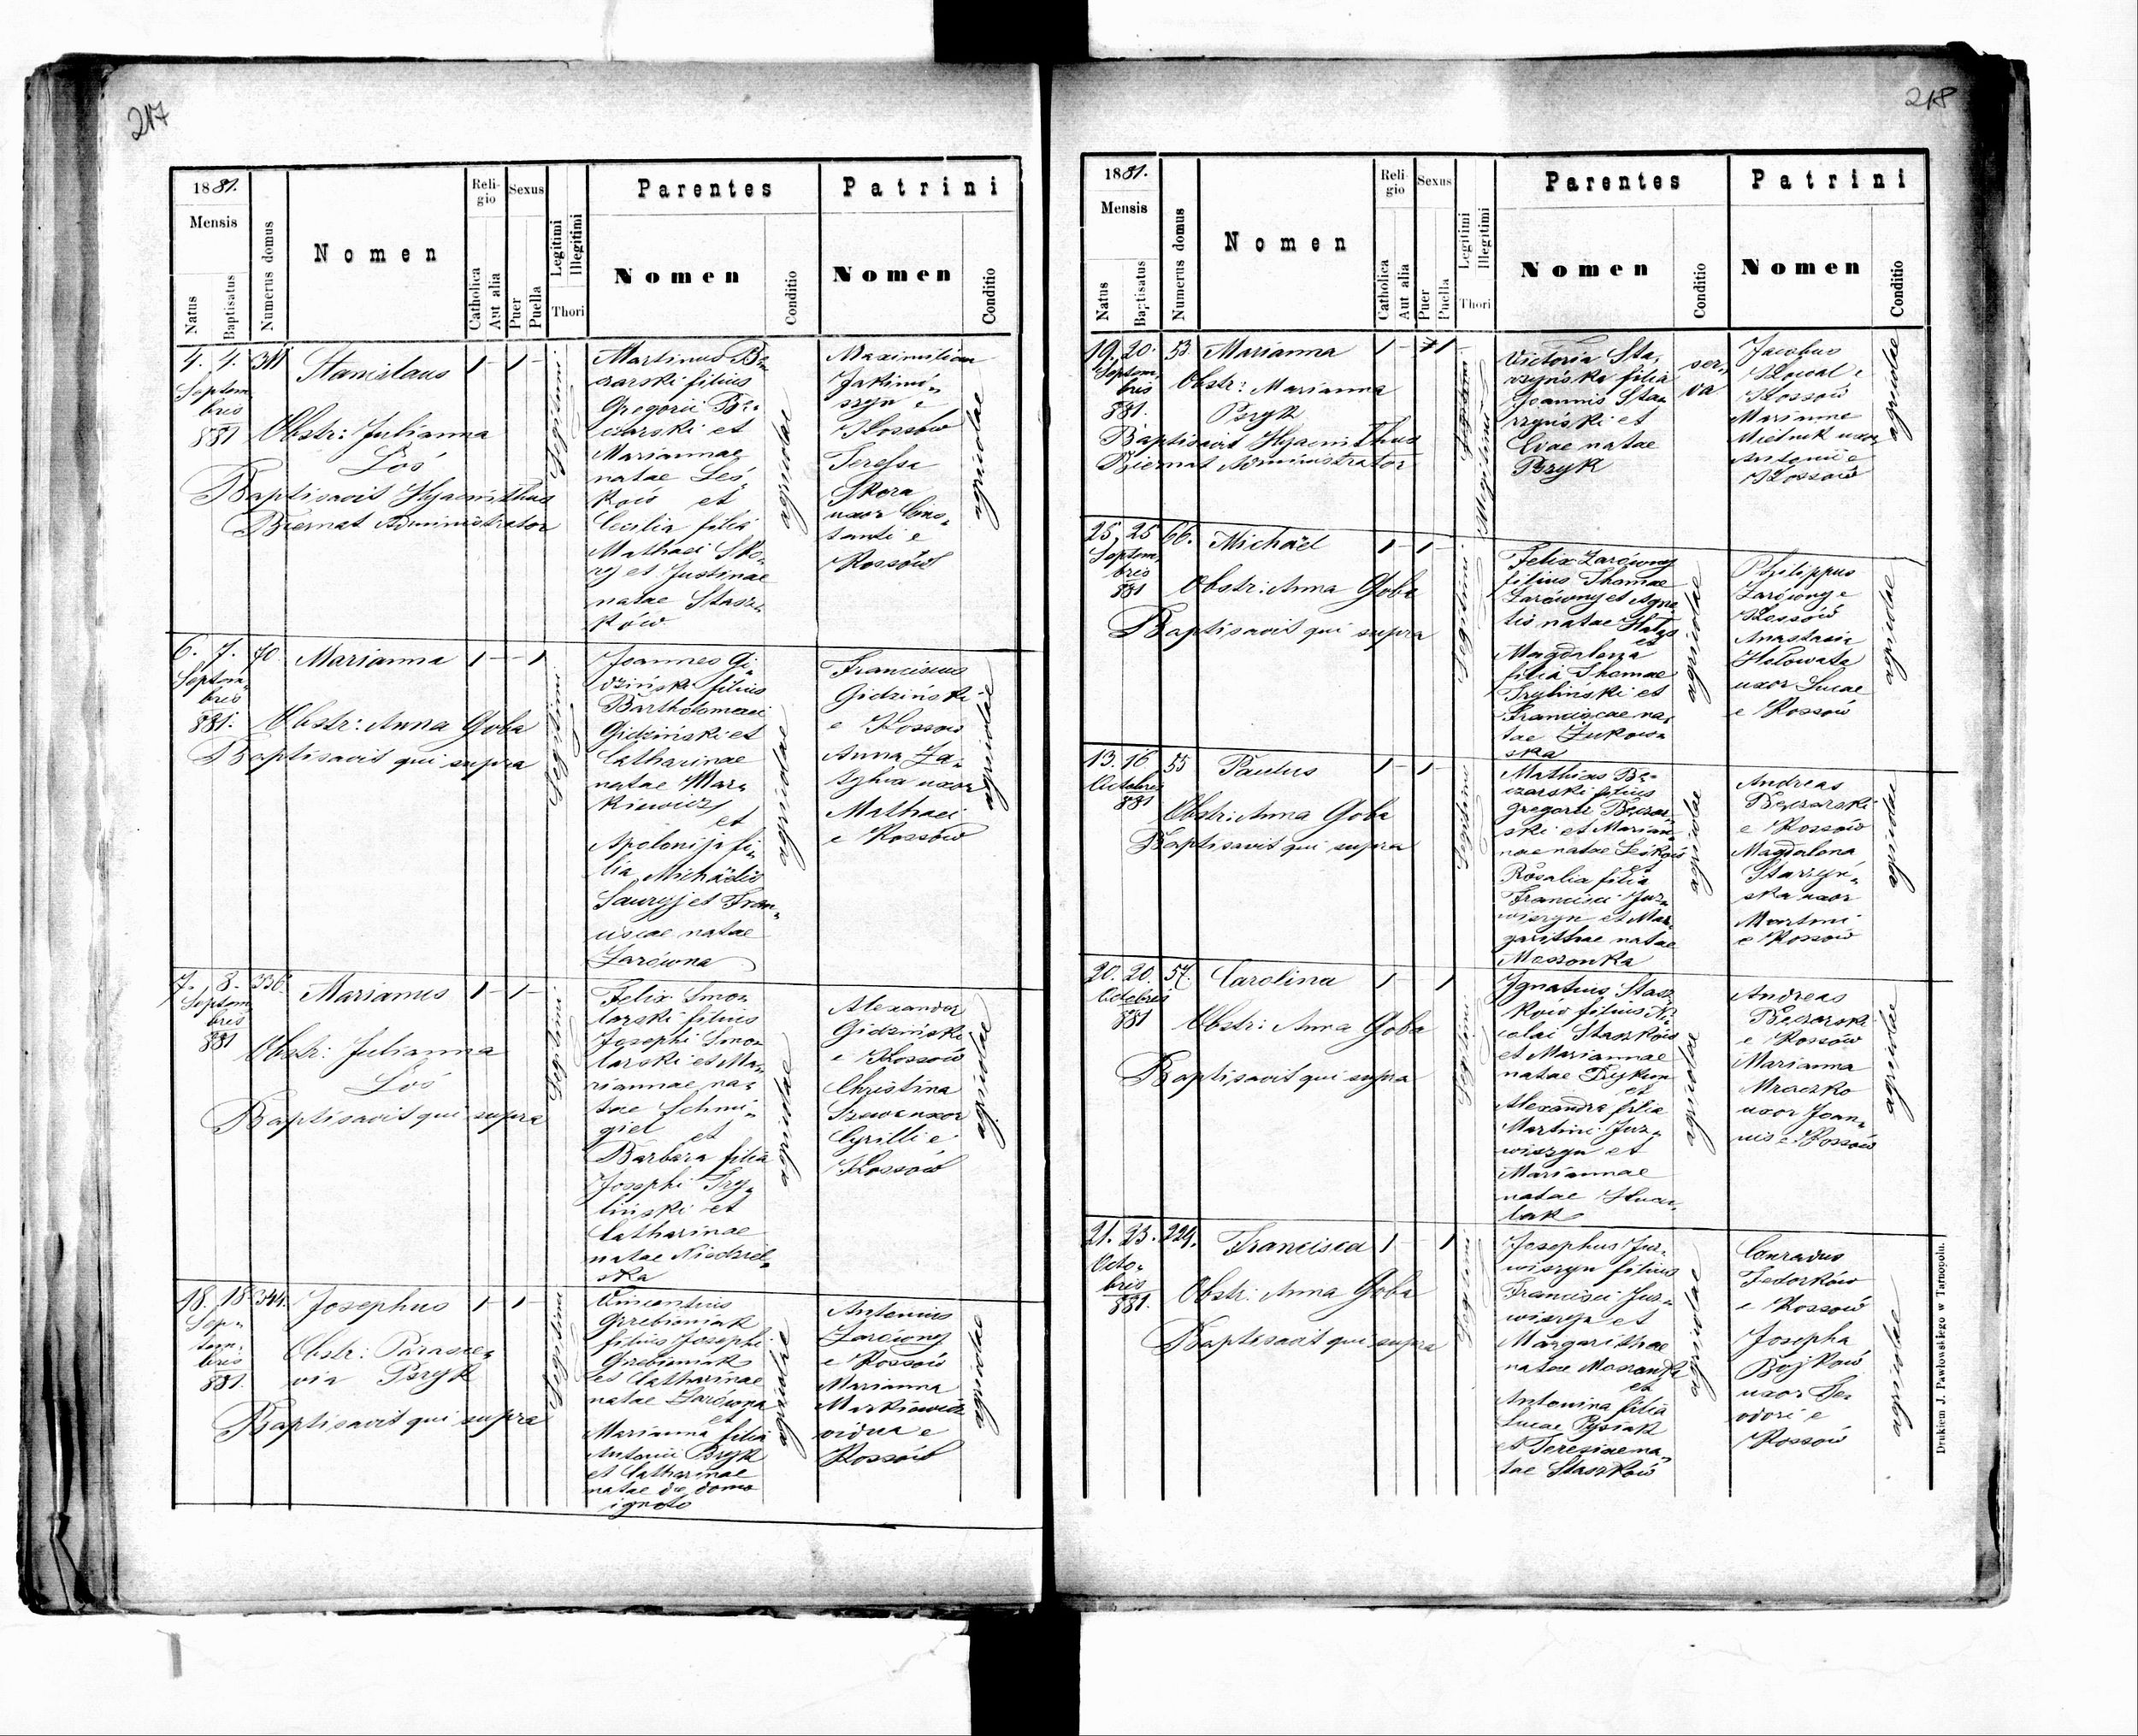 217
1881.
Mensis
Natus
Baptisatus
Numerus domus
Nomen
Religio
Catholica
Aut alia
Sexus
Puer
Puella
Legitimi
Illegitimi
Thori
Parentes
Nomen
Conditio
Patrini
Nomen
Conditio
4. 4. 311 Stanislaus 1 - 1 -
Septem
bris
881
Obstr: Julianna
Łoś
Baptisavit Hyacinthus
Biernat Administrator
Legitimi
Martinus Bę-
czarski filius
Gregorii Bę-
czarski et
Mariannae
natae Leś-
ków et
Cecilia filia
Mathaei Sko-
ry et Justinae
natae Stasz-
ków
agricolae
Maximilian
Jakimi-
szyn e
Kossów
Teressa
Skora
uxor Cons-
tanti e
Kossów
agricolae
6. 7. 70 Marianna 1 - - 1
Septem-
bris
881.
Obstr: Anna Goba
Baptisavit qui supra
Legitimi
Joannes Gi-
dziński filius
Bartholomaei
Gidziński et
Catharinae
natae Mar-
kiewicz
et
Apolonija fi-
lia Michaëlis
Sauryj et Fran-
ciscae natae
Zarówna
agricolae
Franciscus
Gidziński
e Kossów
Anna Za-
sylna uxor
Mathaei
e Kossów
agricolae
7. 8. 336. Marianus 1 - 1 -
Septem
bris
881
Obstr: Julianna
Łoś
Baptisavit qui supra
Legitimi
Felix Smo-
larski filius
Josephi Smo-
larski et Ma-
riannae na-
tae Schmi-
giel et
Barbara filia
Josephi Try-
liński et
Catharinae
natae Niedziel-
ska
agricolae
Alexander
Gidziński
e Kossów
Christina
Szewc uxor
Cyrilli e
Kossów
agricolae
18. 18. 344. Josephus 1 - 1 -
Sep-
tem-
bris
881.
Obstr: Parasce-
via Pszyk
Baptisavit qui supra
Legitimi
Vincentius
Grzebieniak
filius Josephi
Grzebieniak
et Catharinae
natae Zarówna
et
Marianna filia
Antonii Pszyk
et Catharinae
natae de domo
ignoto
agricolae
Antonius
Zarówny
e Kossów
Marianna
Markiewicz
vidua e
Kossów
agricolae
218
1881.
Mensis
Natus
Baptisatus
Numerus domus
Nomen
Religio
Catholica
Aut alia
Sexus
Puer
Puella
Legitimi
Illegitimi
Thori
Parentes
Nomen
Conditio
Patrini
Nomen
Conditio
19. 20. 53 Marianna 1 - 1 -
Septem
bris
881.
Obstr: Marianna
Pszyk
Baptisavit Hyacinthus
Biernat Administrator
Illegitimi
Victoria Sta-
rzyńska filia
Joannis Sta-
rzyński et
Evae natae
Pszyk
ser-
va
Jacobus
Kowal e
Kossów
Marianne
Mietnik uxor
Antonii e
Kossów
agricolae
25. 25 66. Michaël 1 - 1 -
Septem
bris
881
Obstr: Anna Goba
Baptisavit qui supra
Legitimi
Felix Zarówny
filius Thomae
Zarówny et Agne-
tis natae
et
Magdalena
filia Thomae
Tryliński et
Franciscae na-
tae Żukow-
ska
agricolae
Philippus
Zarówny e
Kossów
Anastasia
Hołowata
uxor Lucae
e Kossów
agricolae
13. 16 55 Paulus 1 - 1 -
Octobris
881
Obstr: Anna Goba
Baptisavit qui supra
Legitimi
Mathias Bę-
czarski filius
Gregorii Bęczar-
ski et Marian-
nae natae Leśków
et
Rosalia filia
Francisci Jur-
wiszyn et Mar-
garithae natae
Mosronka
agricolae
Andreas
Bęczarski
e Kossów
Magdalena
Starzyń-
ska uxor
Martini
e Kossów
agricolae
20. 20. 57. Carolina 1 - 1
Octobris
881
Obstr: Anna Goba
Baptisavit qui supra
Legitimi
Ignatius Stasz-
ków filius Ni-
colai Staszków
et Mariannae
natae
et
Alexandra filia
Martini Jur-
wiszyn et
Mariannae
natae
agricolae
Andreas
Bęczarski
e Kossów
Marianna
Mraczko
uxor Joan-
nis e Kossów
agricolae
21. 23. 229. Francisca 1 - 1
Octo-
bris
881.
Obstr: Anna Goba
Baptisavit qui supra
Legitimi
Josephus Jur-
wiszyn filius
Francisci Jur-
wiszyn et
Margarithae
natae Mosronka
et
Antonina filia
Lucae Pysiak
et Teresiae na-
tae Staszków
agricolae
Conradus
Fedorków
e Kossów
Josepha
Bojków
uxor
e
Kossów
agricolae
Drukiem J. Pawłowskiego w Tarnopolu.